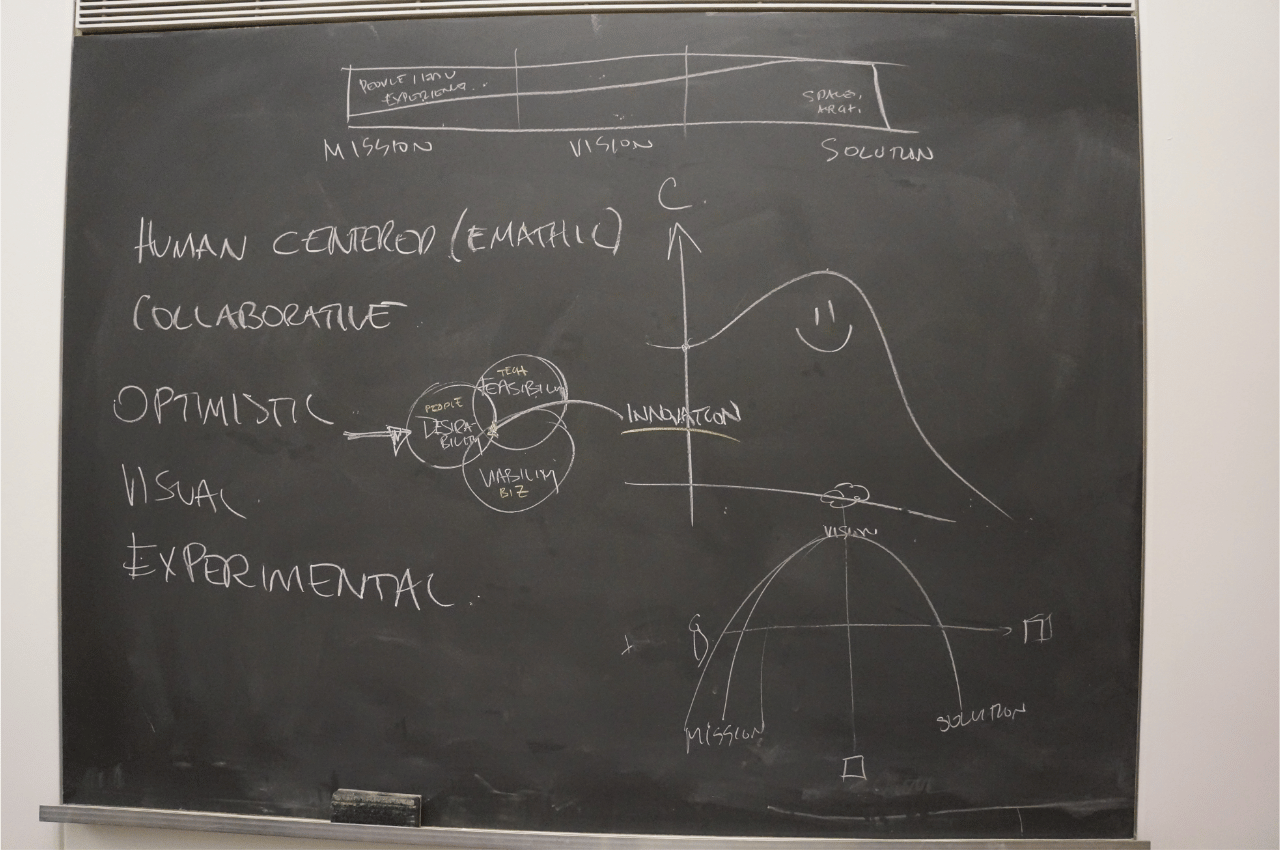 PEOPLE
EXPERIENCE..
SPACE,
MISSION
VISION
SOLUTION
C.
HUMAN CENTERED (EMATHIC)
COLLABORATIVE
OPTIMISTIC
VISUAL
EXPERIMENTAL
TECH
FEASIBILITY
PEOPLE
DESIRA-
BILITY
VIABILITY
BIZ
INNOVATION
VISION
MISSION
SOLUTION